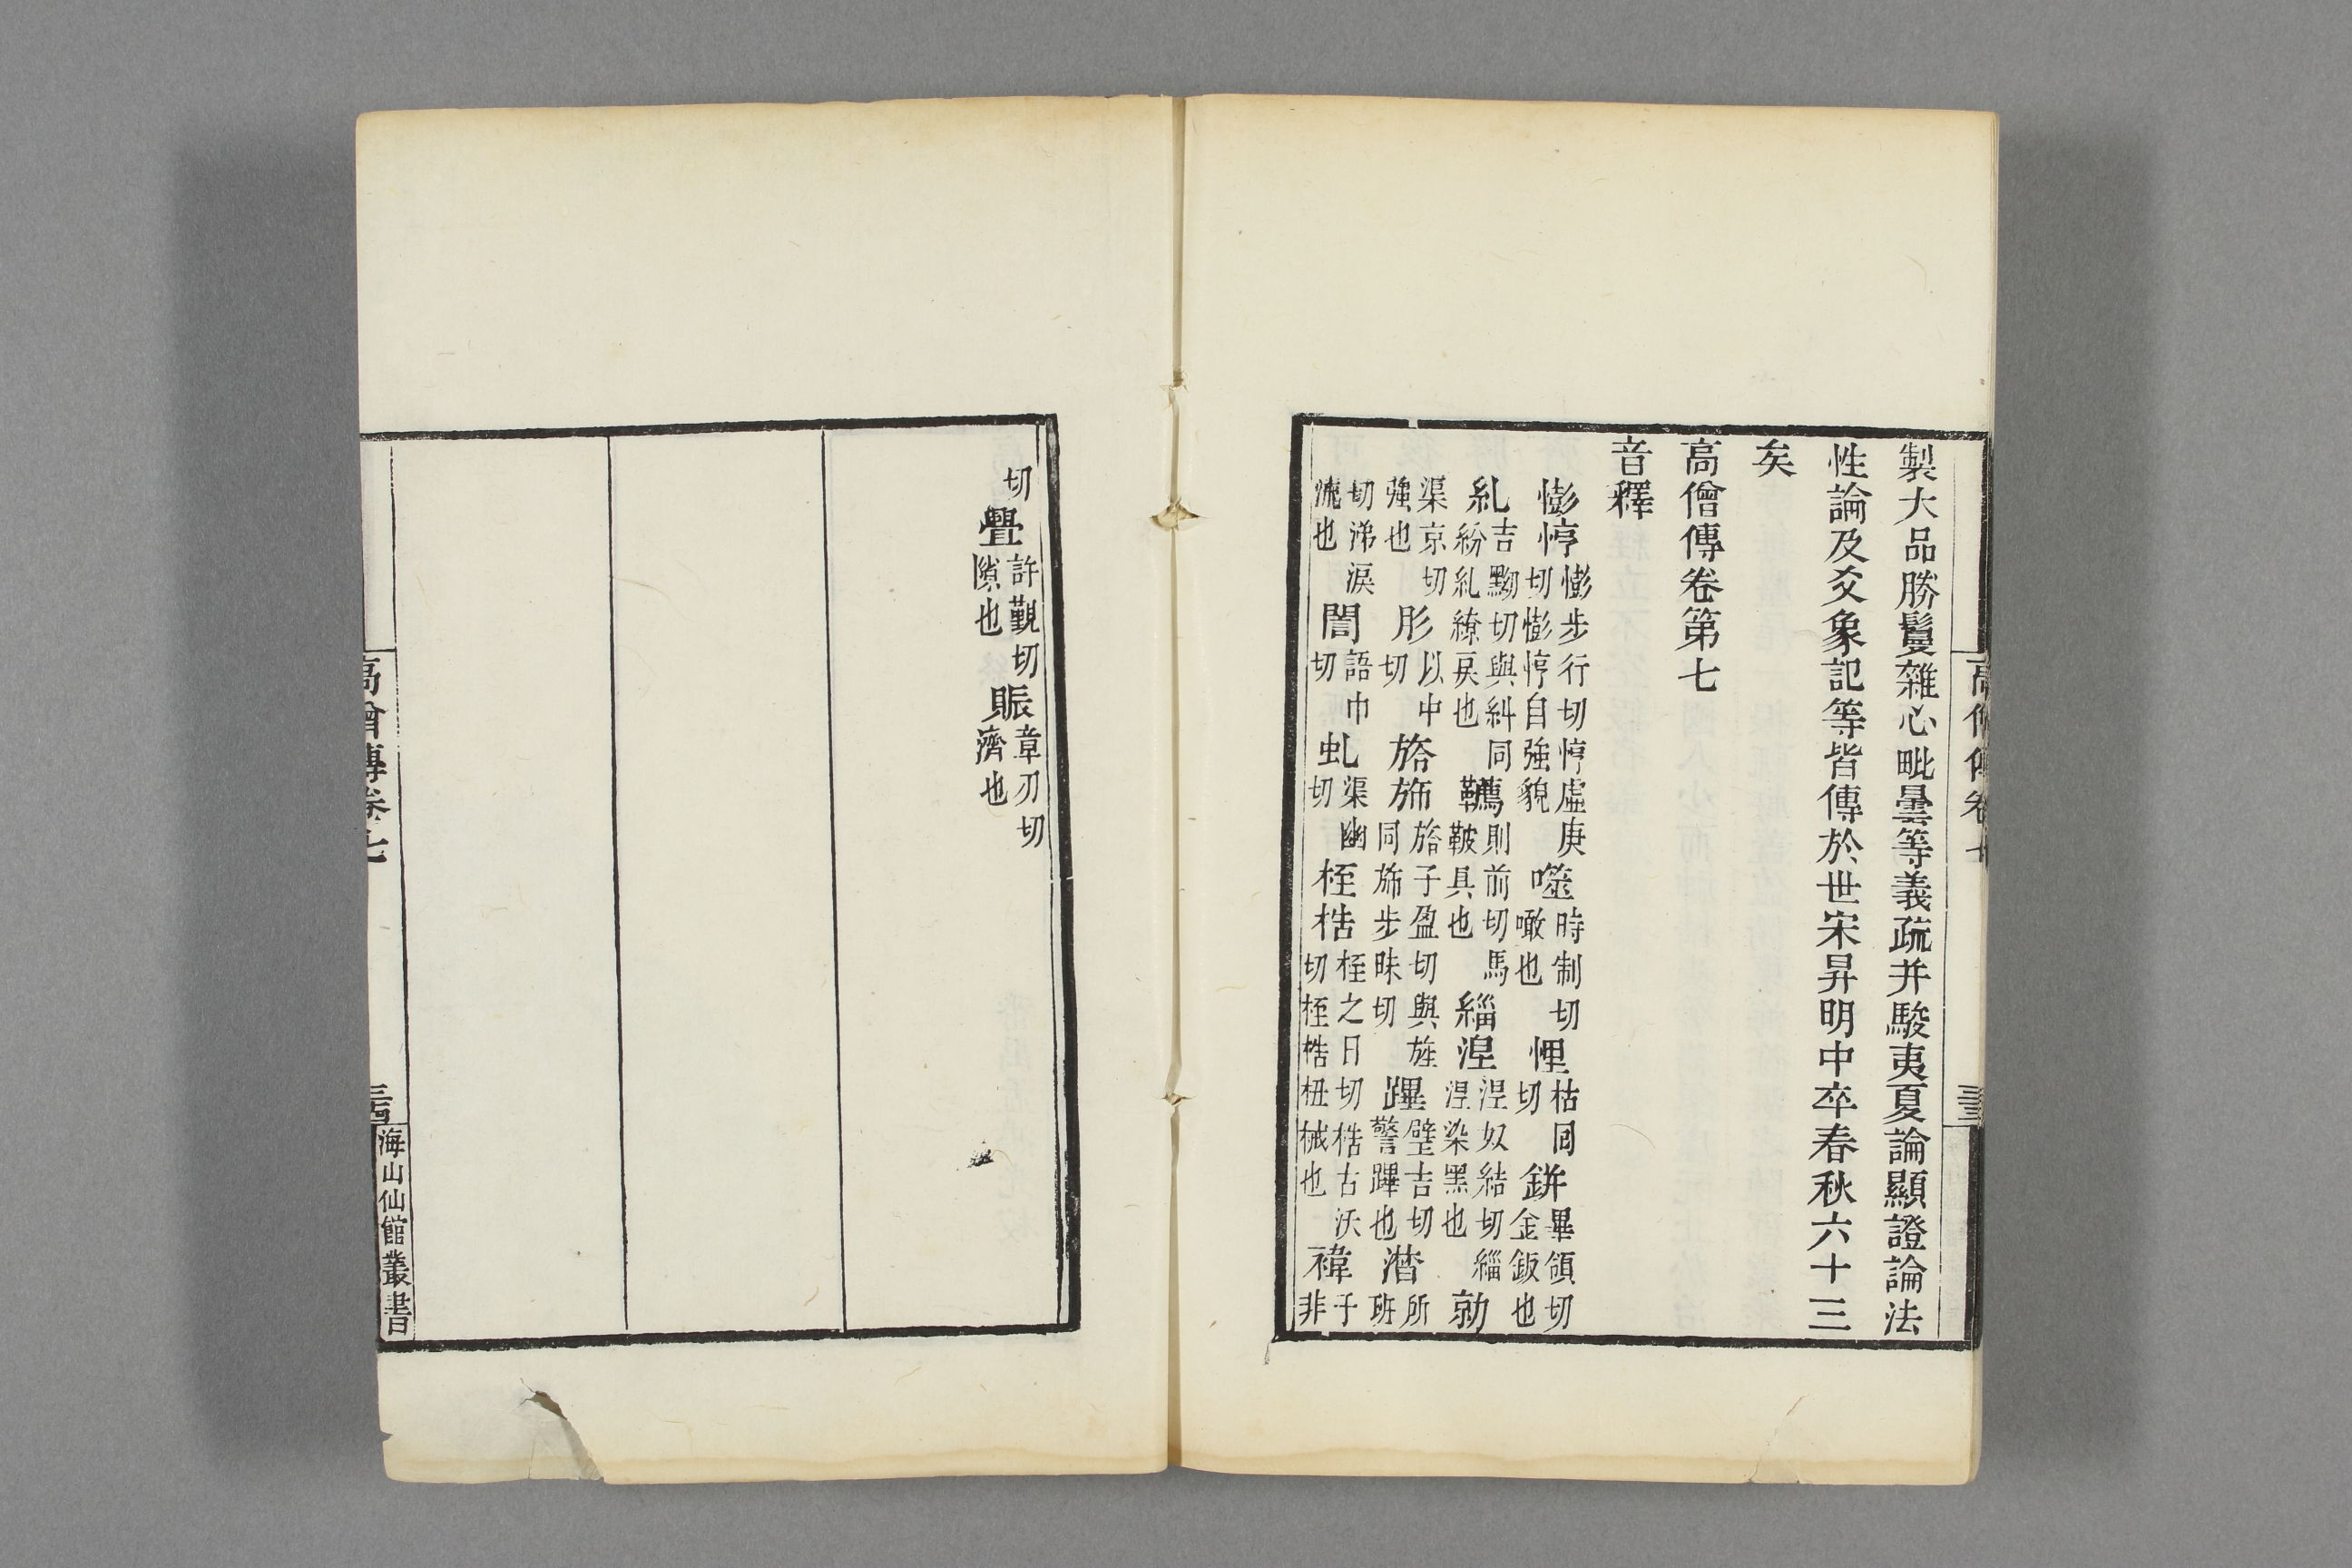 製大品勝鬘雜心毗曇等義疏并駿夷夏論顯證論法
性論及爻象記等皆傳於世宋昇明中卒春秋六十三
矣
高僧傳卷第七
音釋
憉悙憉步行切悙虛庚切憉悙自強貌噬時制切噉也悝枯囘切鉼畢領切金鈑也
糺吉黝切與糾同紛糺繚戾也韉則前切馬鞁具也緇涅涅奴結切緇涅染黑也勍
渠京切強也肜以中切旍斾旍子盈切與旌同斾步昧切蹕壁吉切警蹕也潸所班
切涕淚流也誾語巾切虬渠幽切桎梏桎之日切梏古沃切桎梏杻械也褘于非
切釁許覲切隙也賑章刃切濟也
高僧傳卷七
三十四
海山仙館叢書